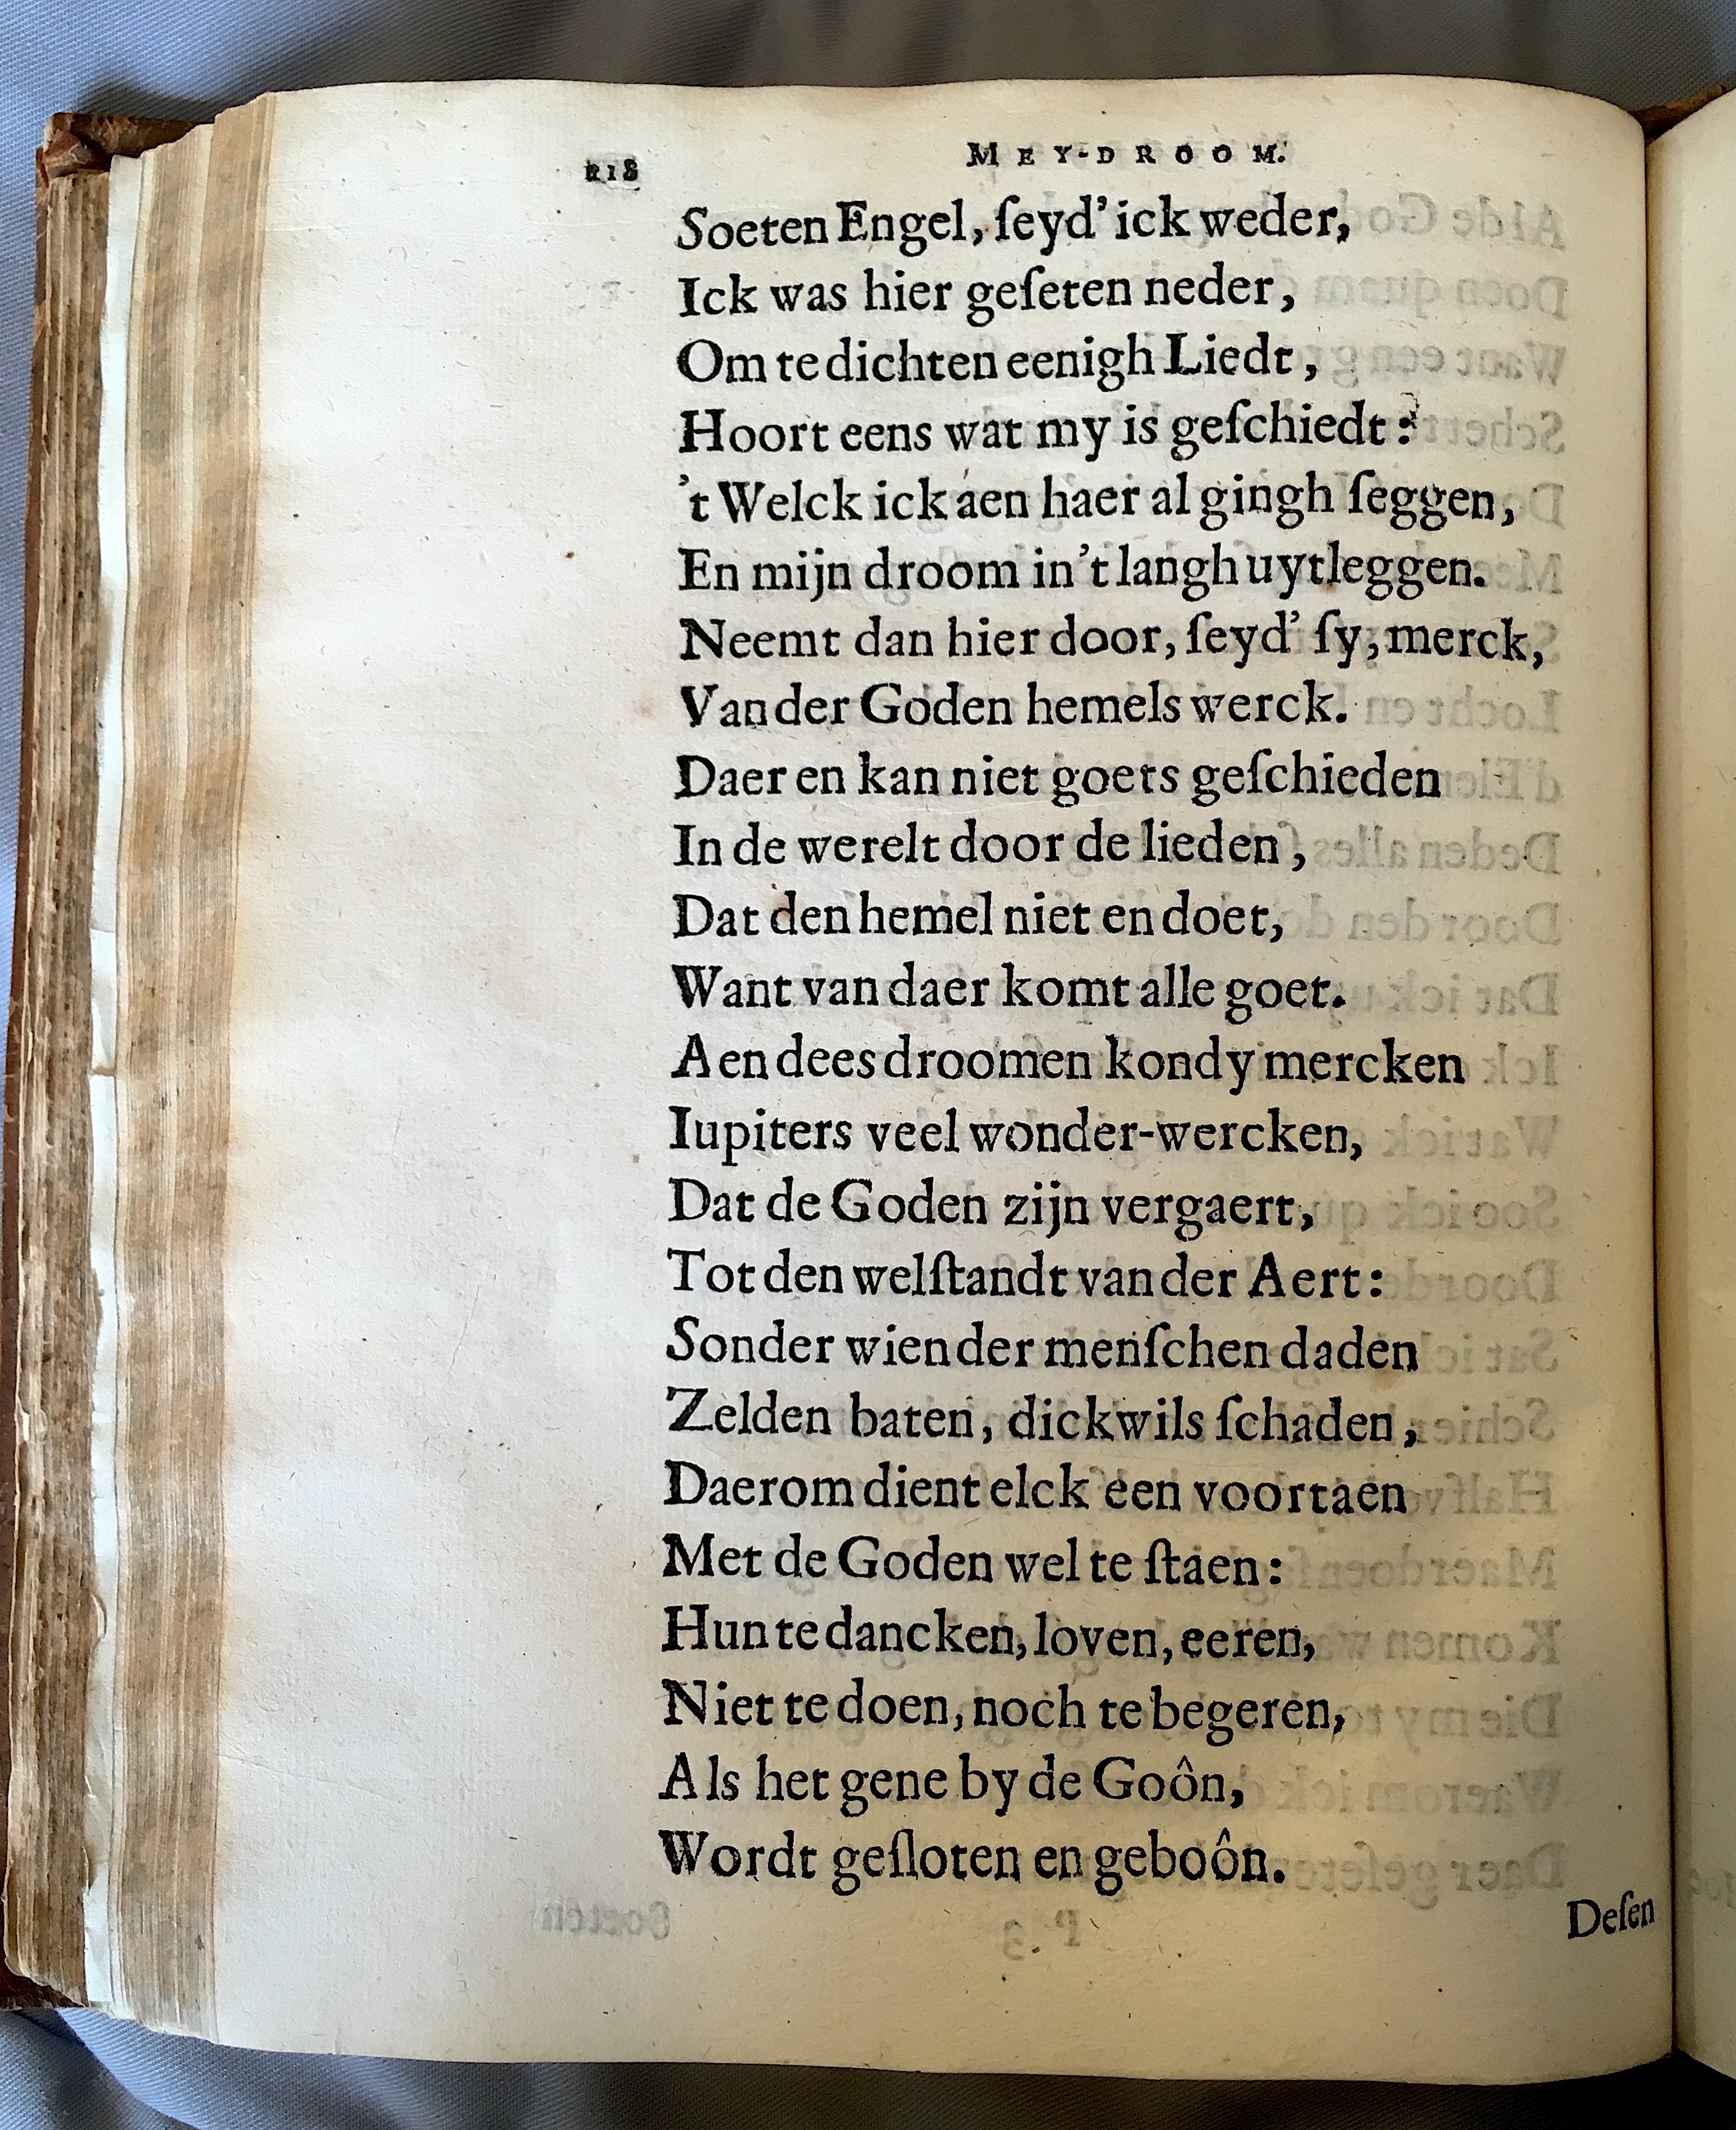 MEY-DROOM.
Soeten Engel, ſeyd' ick weder,
Ick was hier geſeten neder,
Om te dichten eenigh Liedt,
Hoort eens wat my is geſchiedt:
't Welck ick aen haer al gingh ſeggen,
En mijn droom in 't langh uytleggen.
Neemt dan hier door, ſeyd' ſy, merck,
Van der Goden hemels werck.
Daer en kan niet goets geſchieden
In de werelt door de lieden,
Dat den hemel niet en doet,
Want van daer komt alle goet.
Aen dees droomen kondy mercken
Iupiters veel wonder-wercken,
Dat de Goden zijn vergaert,
Tot den welſtandt van der Aert:
Sonder wien der menſchen daden
Zelden baten, dickwils ſchaden,
Daerom dient elck een voortaen
Met de Goden wel te ſtaen:
Hun te dancken, loven, eeren,
Niet te doen, noch te begeren,
Als het gene by de Goôn,
Wordt geſloten en geboôn.
Deſen